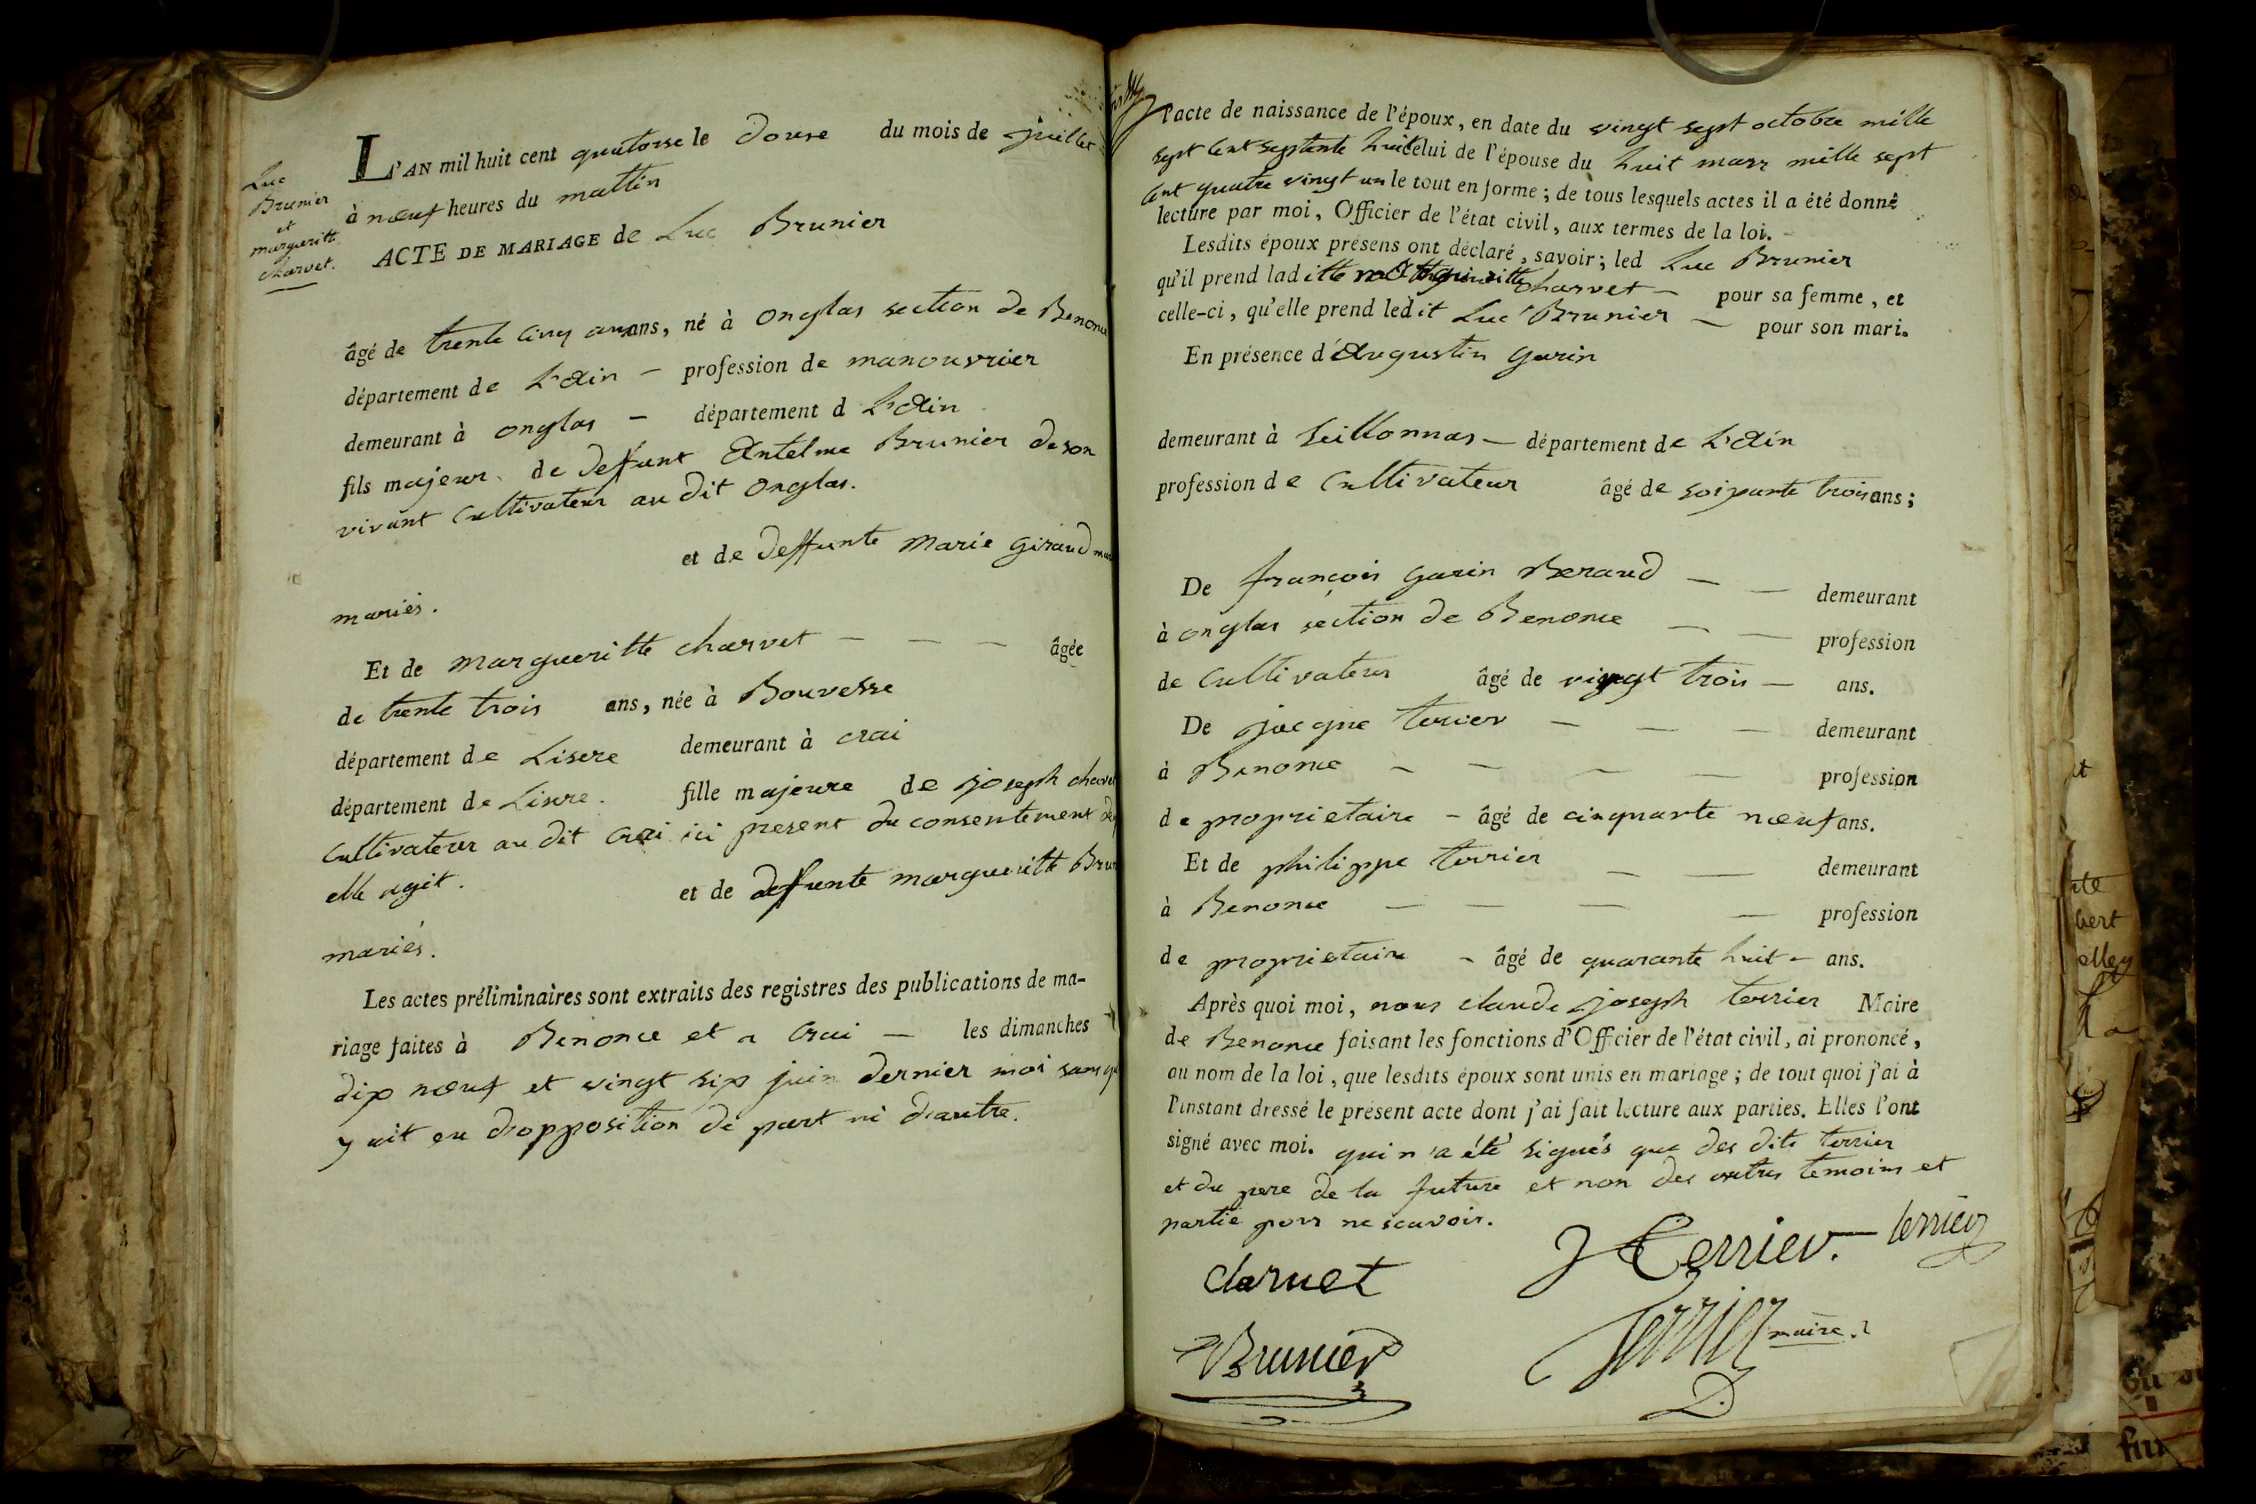 Luc
Brunier
et
margueritte
charvet.
L'AN mil huit cent quatorse le douse du mois de juillet
à nœuf heures du mattin
ACTE DE MARIAGE de Luc Brunier
âgé de trente cinq ans ans, né à onglas section de Benonce
département de L'Ain — profession de manouvrier
demeurant à onglas — département d L'Ain
fils majeur de deffunt Antelme Brunier de son
vivant cultivateur au dit onglas.
et de deffunte Marie Giraud
mariés.
Et de margueritte charvet — — — âgée
de trente trois ans, née à Bouvesse
département de Lisere demeurant à crai
département de Lisere. fille majeure de joseph charvet
cultivateur au dit crai ici present du consentement
elle agit. et de deffunte margueritte
mariés.
Les actes préliminaires sont extraits des registres des publications de ma-
riage faites à Benonce et a Crai — les dimanches
dix nœuf et vingt six juin dernier moi sans
y ait eu d'opposition de part ni d'autre.
l'acte de naissance de l'époux, en date du vingt sept octobre mille
sept cent septente huit celui de l'épouse du huit mars mille sept
cent quatre vingt un le tout en forme ; de tous lesquels actes il a été donné
lecture par moi, Officier de l'état civil, aux termes de la loi.
Lesdits époux présens ont déclaré, savoir ; led Luc Brunier
qu'il prend laditte margueritte charvet — pour sa femme, et
celle-ci, qu'elle prend ledit Luc Brunier — pour son mari.
En présence d'Augustin Garin
demeurant à Seillonnas — département de L'Ain
profession de cultivateur âgé de soixante trois ans ;
De françois garin Beraud — — demeurant
à onglas section de Benonce — — profession
de cultivateur âgé de vingt trois — ans.
De jacque terrier — — — demeurant
à Benonce — — — — profession
de proprietaire — âgé de cinquante nœuf ans.
Et de philippe terrier — — demeurant
à Benonce — — — — profession
de proprietaire — âgé de quarante huit — ans.
Après quoi moi, nous claude joseph terrier Maire
de Benonce faisant les fonctions d'Officier de l'état civil, ai prononcé,
au nom de la loi, que lesdits époux sont unis en mariage ; de tout quoi j'ai à
l'instant dressé le présent acte dont j'ai fait lecture aux parties. Elles l'ont
signé avec moi. qui n'a été signés que des dits terrier
et du pere de la future et non des autres temoins et
partie pour ne scavoir.
J terrier. terrier
charuet
terrier maire.
Brunier